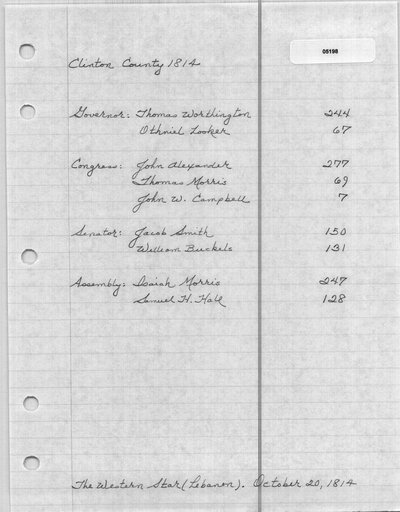 05198
Clinton County 1814
Governor: Thomas Worthington 244
Othniel Looker 67
Congress: John Alexander 277
Thomas Morris 69
John W. Campbell 7
Senator: Jacob Smith 150
William Buckels 131
Assembly: Isaiah Morris 247
Samuel H. Hale 128
The Western Star (Lebanon). October 20, 1814